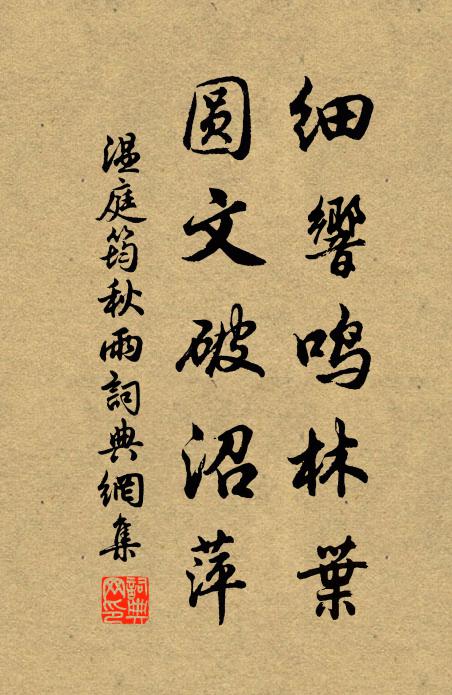 细響鸣林葉
圆文破沼萍
温庭筠秋雨詞典網集
詞典网印